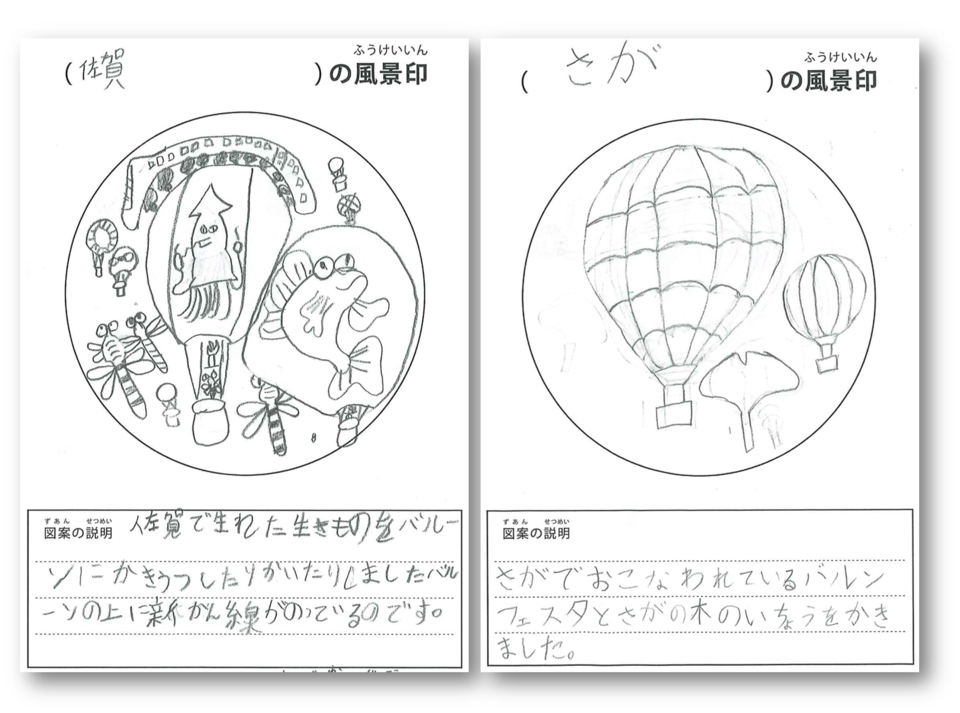 ふうけいいん
(佐賀 )の風景印
ずあん せつめい
図案の説明 佐賀で生れた生きものをバルー
ンにかきうつしたりかいたりしましたバル
ーンの上に新かん線がのっているのです。
ふうけいいん
( さが )の風景印
ずあん せつめい
図案の説明
さがでおこなわれているバルン
フェスタとさがの木のいちょうをかき
ました。